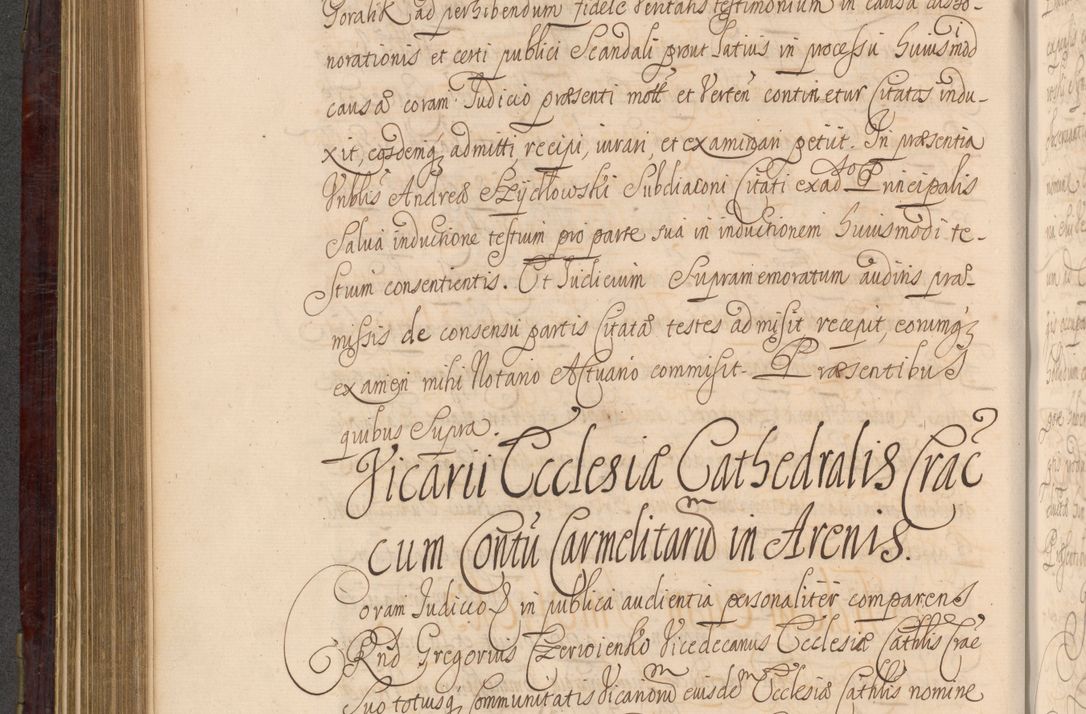 Goralik ad perhibendum fidele Veritatis testimonium in causa exho-
norationis et certi publici Scandali prout latius in processu huiusmod
causa coram Judicio præsenti mott et Verten continetur Citatus indu-
xit, eosdemq admitti, recipi, iurari, et examinari petiit. In præsentia
Vnblis Andreæ Szydłowski Subdiaconi Citati ex ad Principalis
Salva inductione testium pro parte sua in inductionem huiusmodi te-
stium consentientis. Et Judicium Supramemoratum auditis præ-
missis de consensu partis Citatæ testes admisit, recepit, eorumq
examen mihi Notario Actuario commisit. Præsentibus
quibus Supra.
Vicarii Ecclesiæ Cathedralis Crac
cum Contu Carmelitarum in Arenis.
Coram Judicio S in publica audientia personaliter comparens
Rnd Gregorius Czerwienko Vicedecanus Ecclesiæ Cathlis Crac
Suo totiusq Communitatis Vicariorum eiusdem Ecclesiæ Cathlis nomine